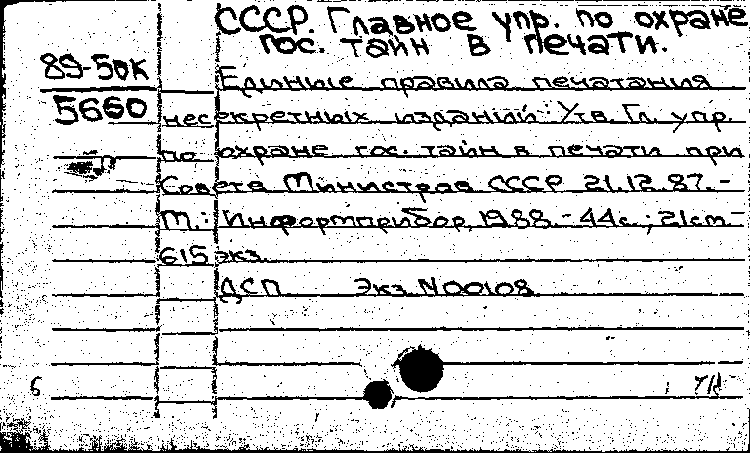 СССР. Главное упр. по охране
гос. тайн в печати.
89-50к
5660
Единые правила печатания
несекретных изданий: Утв. Гл. упр.
по охране гос. тайн в печати при
Совете Министрав СССР 21.12.87.-
М.: Информприбор, 1988.- 44с.; 21см.-
615 экз.
ДСП Экз. N00108
6